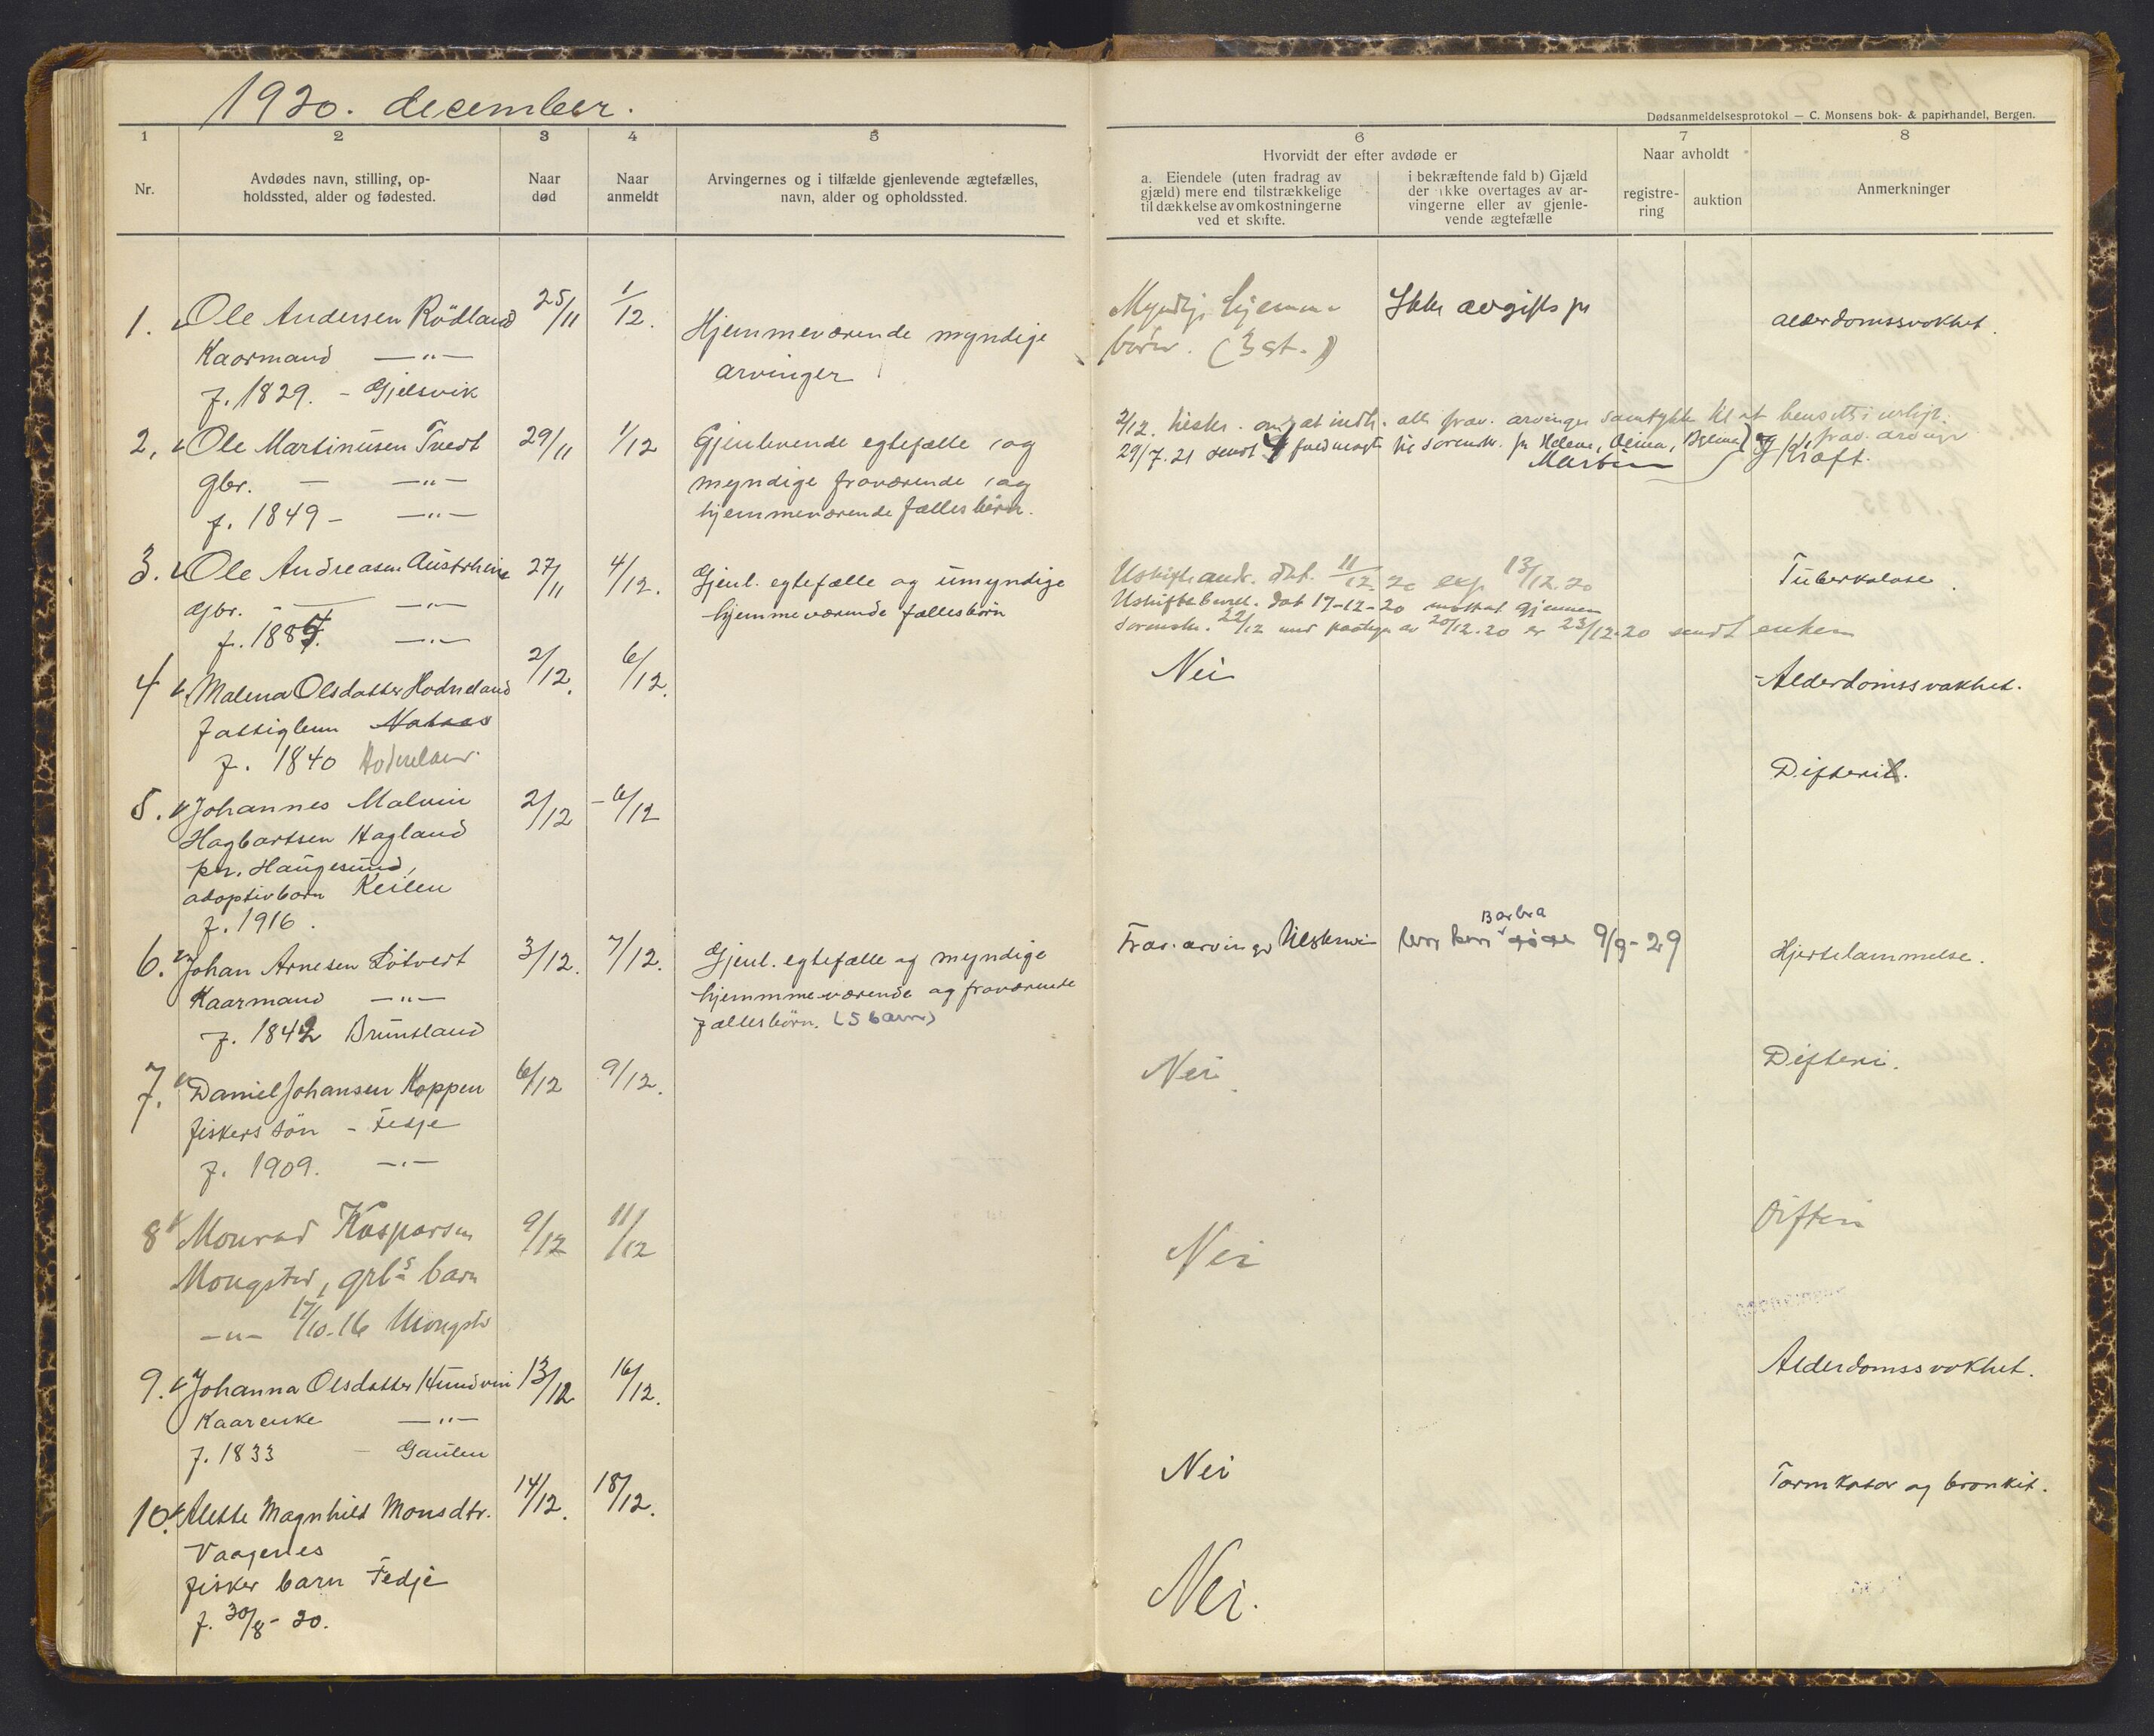 1920. december.
Dødsanmeldelsesprotokol — C. Monsens bok- & papirhandel, Bergen.
1 2 3 4 5 6 7 8
Nr.
Avdødes navn, stilling, op-
holdssted, alder og fødested.
Naar
død
Naar
anmeldt
Arvingernes og i tilfælde gjenlevende ægtefælles,
navn, alder og opholdssted.
Hvorvidt der efter avdøde er
a. Eiendele (uten fradrag av
gjæld) mere end tilstrækkelige
til dækkelse av omkostningerne
ved et skifte.
i bekræftende fald b) Gjæld
der ikke overtages av ar-
vingerne eller av gjenle-
vende ægtefælle
Naar avholdt
registre-
ring
auktion
Anmerkninger
1. Ole Andersen Rödland 25/11 1/12.
Kaarmand —"—
f. 1829. - Gjelsvik
Hjemmeværende myndige
arvinger
Myndige hjemme
börn. (3 st.)
Ikke avgifts
Alderdomssvakhet.
2. Ole Martinusen Tvedt 29/11 1/12
gbr. — —"—
f. 1849 - —"—
Gjenlevende egtefælle og
myndige fraværende og
hjemmeværende fællesbörn.
2/12. at indh. alle frav. arvinger samtykke til at
29/7.21 sendt 4 til sorensk. Helene, Olina,
Martin
Kraft.
3. Ole Andreasen Austrheim 27/11 4/12.
Gbr. - —"—
f. 1887. —"—
Gjenl. egtefælle og umyndige
hjemmeværende fællesbörn
Uskifteandr. dat. 11/12 20 exp. 13/12.20
Uskiftebevil. dat 17-12-20 mottat gjennem
sorensk. 22/12 med av 20/12.20 er 23/12.20 sendt enken
Tuberkulose.
4 Malena Olsdatter Hodneland 2/12. 6/12.
fattiglem
f. 1840 Hodneland
Nei
Alderdomssvakhet.
5. Johannes Malvin 2/12 - 6/12
Hagbartsen Hagland
pr. Haugesund,
adoptivbarn Keilen
f. 1916.
Difteri.
6. Johan Arnesen Lötvedt 3/12. 7/12.
Kaarmand —"—
f. 1842 Bruntland
Gjenl. egtefælle og myndige
hjemmmeværende og fraværende
fællesbörn. (5 barn)
Frav. arvinger
Barbra
döde 9/9-29
Hjertelammelse.
7. Daniel Johansen Koppen 6/12 9/12.
fiskers sön - Fedje
f. 1909. —"—
Nei
Difteri.
8 Monrad Kasparsen 9/12 11/12
Mongstad, grbs barn
—"— 17/10-16 Mongstad
Nei
Difteri
9. Johanna Olsdatter Hundvin 13/12 16/12.
Kaarenke —"—
f. 1833 - Gaulen
Nei
Alderdomssvakhet.
10. Alette Magnhild Monsdtr. 14/12. 18/12.
Vaagenes
fisker barn Fedje
f. 30/8-20.
Nei.
Tarmkatar og bronkit.